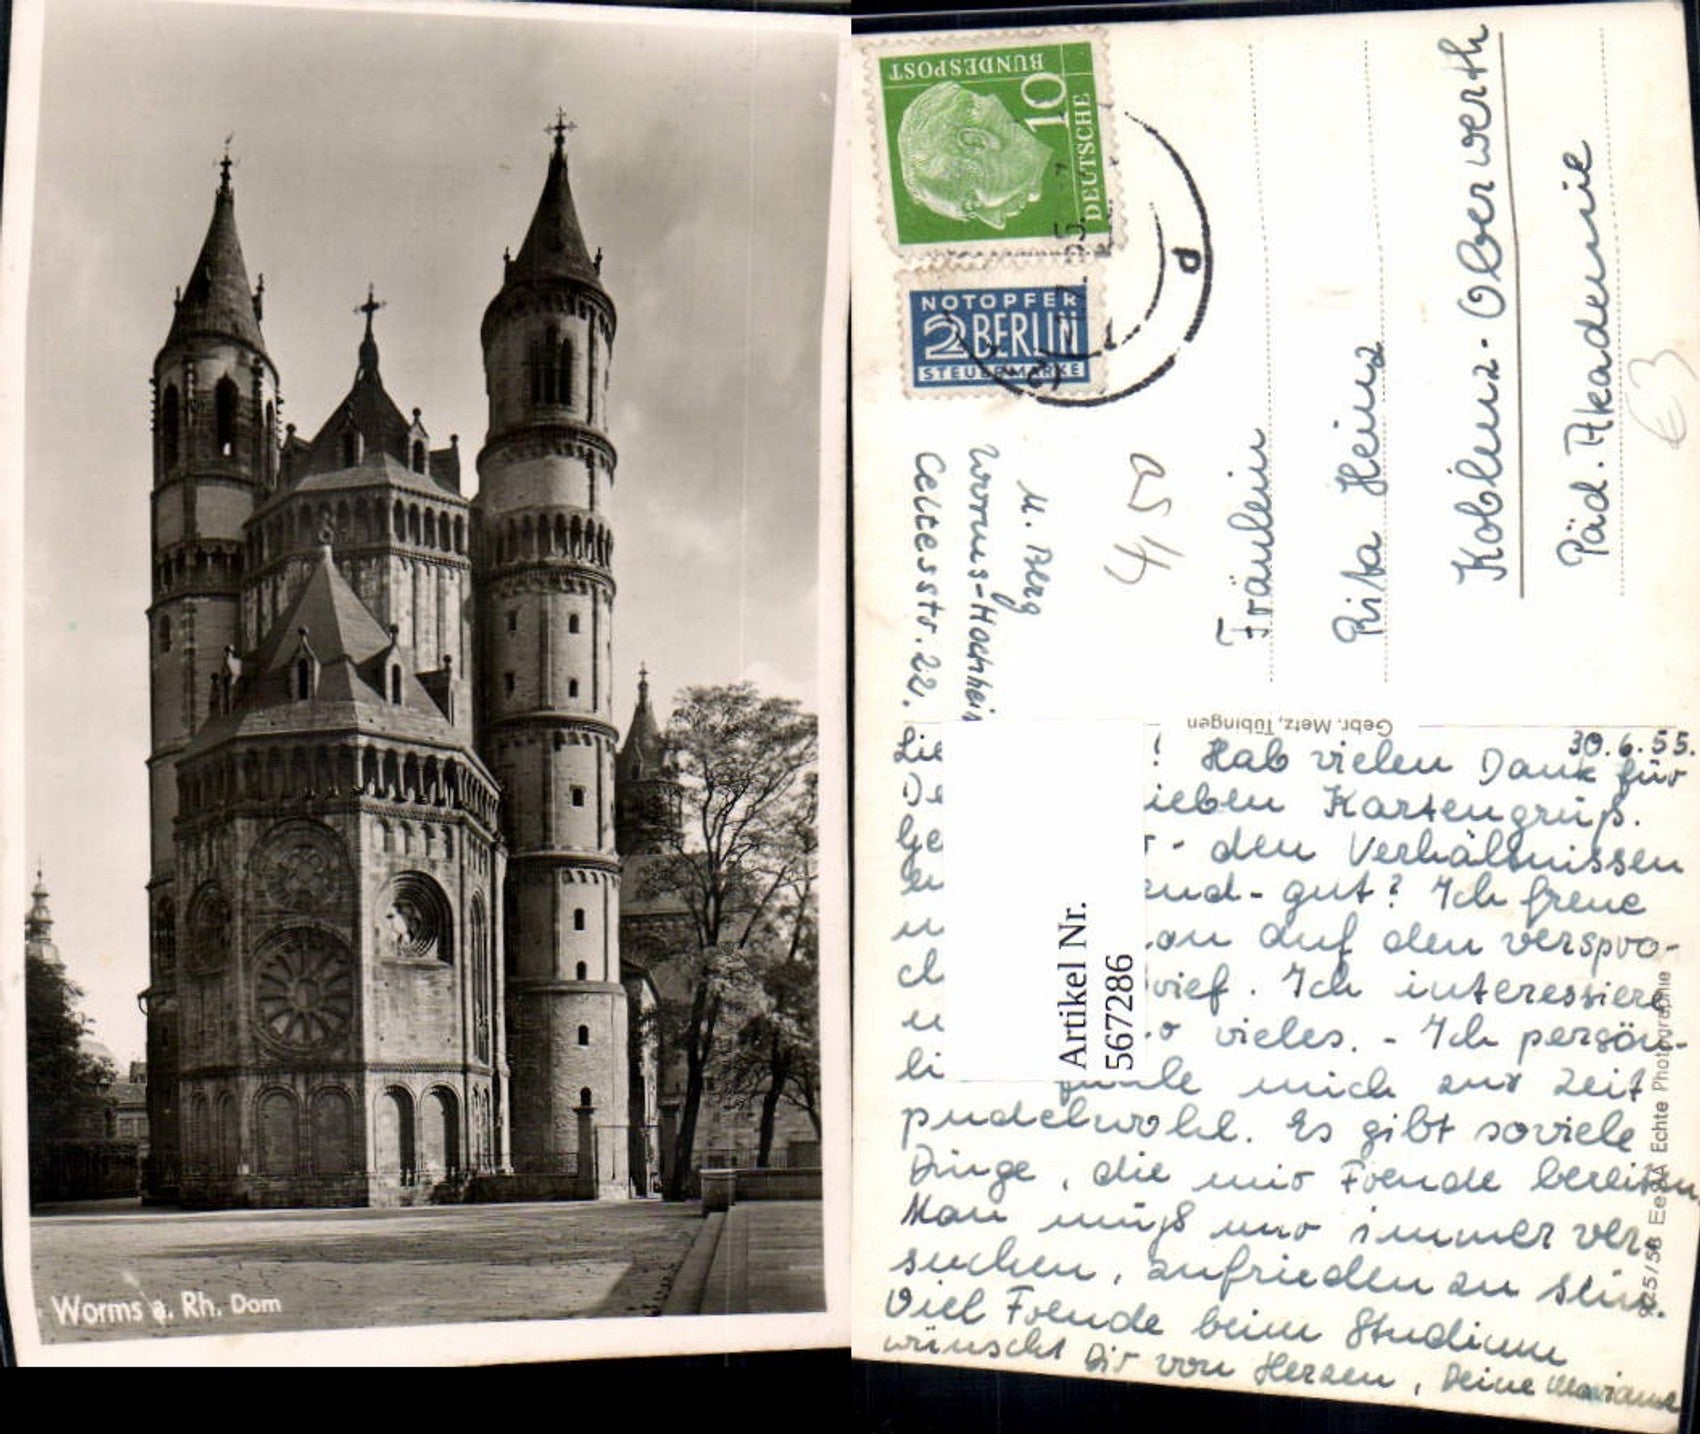 Worms a. Rh. Dom
DEUTSCHE
BUNDESPOST
10
NOTOPFER
2 BERLIN
STEUERMARKE
55
d
M. Berg
Worms-Hochheim
Celtesstr. 22.
Fräulein
Rita Heinz
Koblenz-Oberwerth
Päd. Akademie
€3
Gebr. Metz, Tübingen
Artikel Nr.
567286
30.6.55.
Lie ! Hab vielen Dank für
De ieben Kartengruß.
Ge - den Verhältnissen
end - gut? Ich freue
auf den verspro-
ch rief. Ich interessiere
vieles. - Ich persön-
li fühle mich zur Zeit
pudelwohl. Es gibt soviele
Dinge, die mir Freude bereiten
Man muß nur immer ver-
suchen, zufrieden zu sein.
Viel Freude beim Studium
wünscht Dir von Herzen, Deine Marianne
25/58 Ee AA Echte Photographie